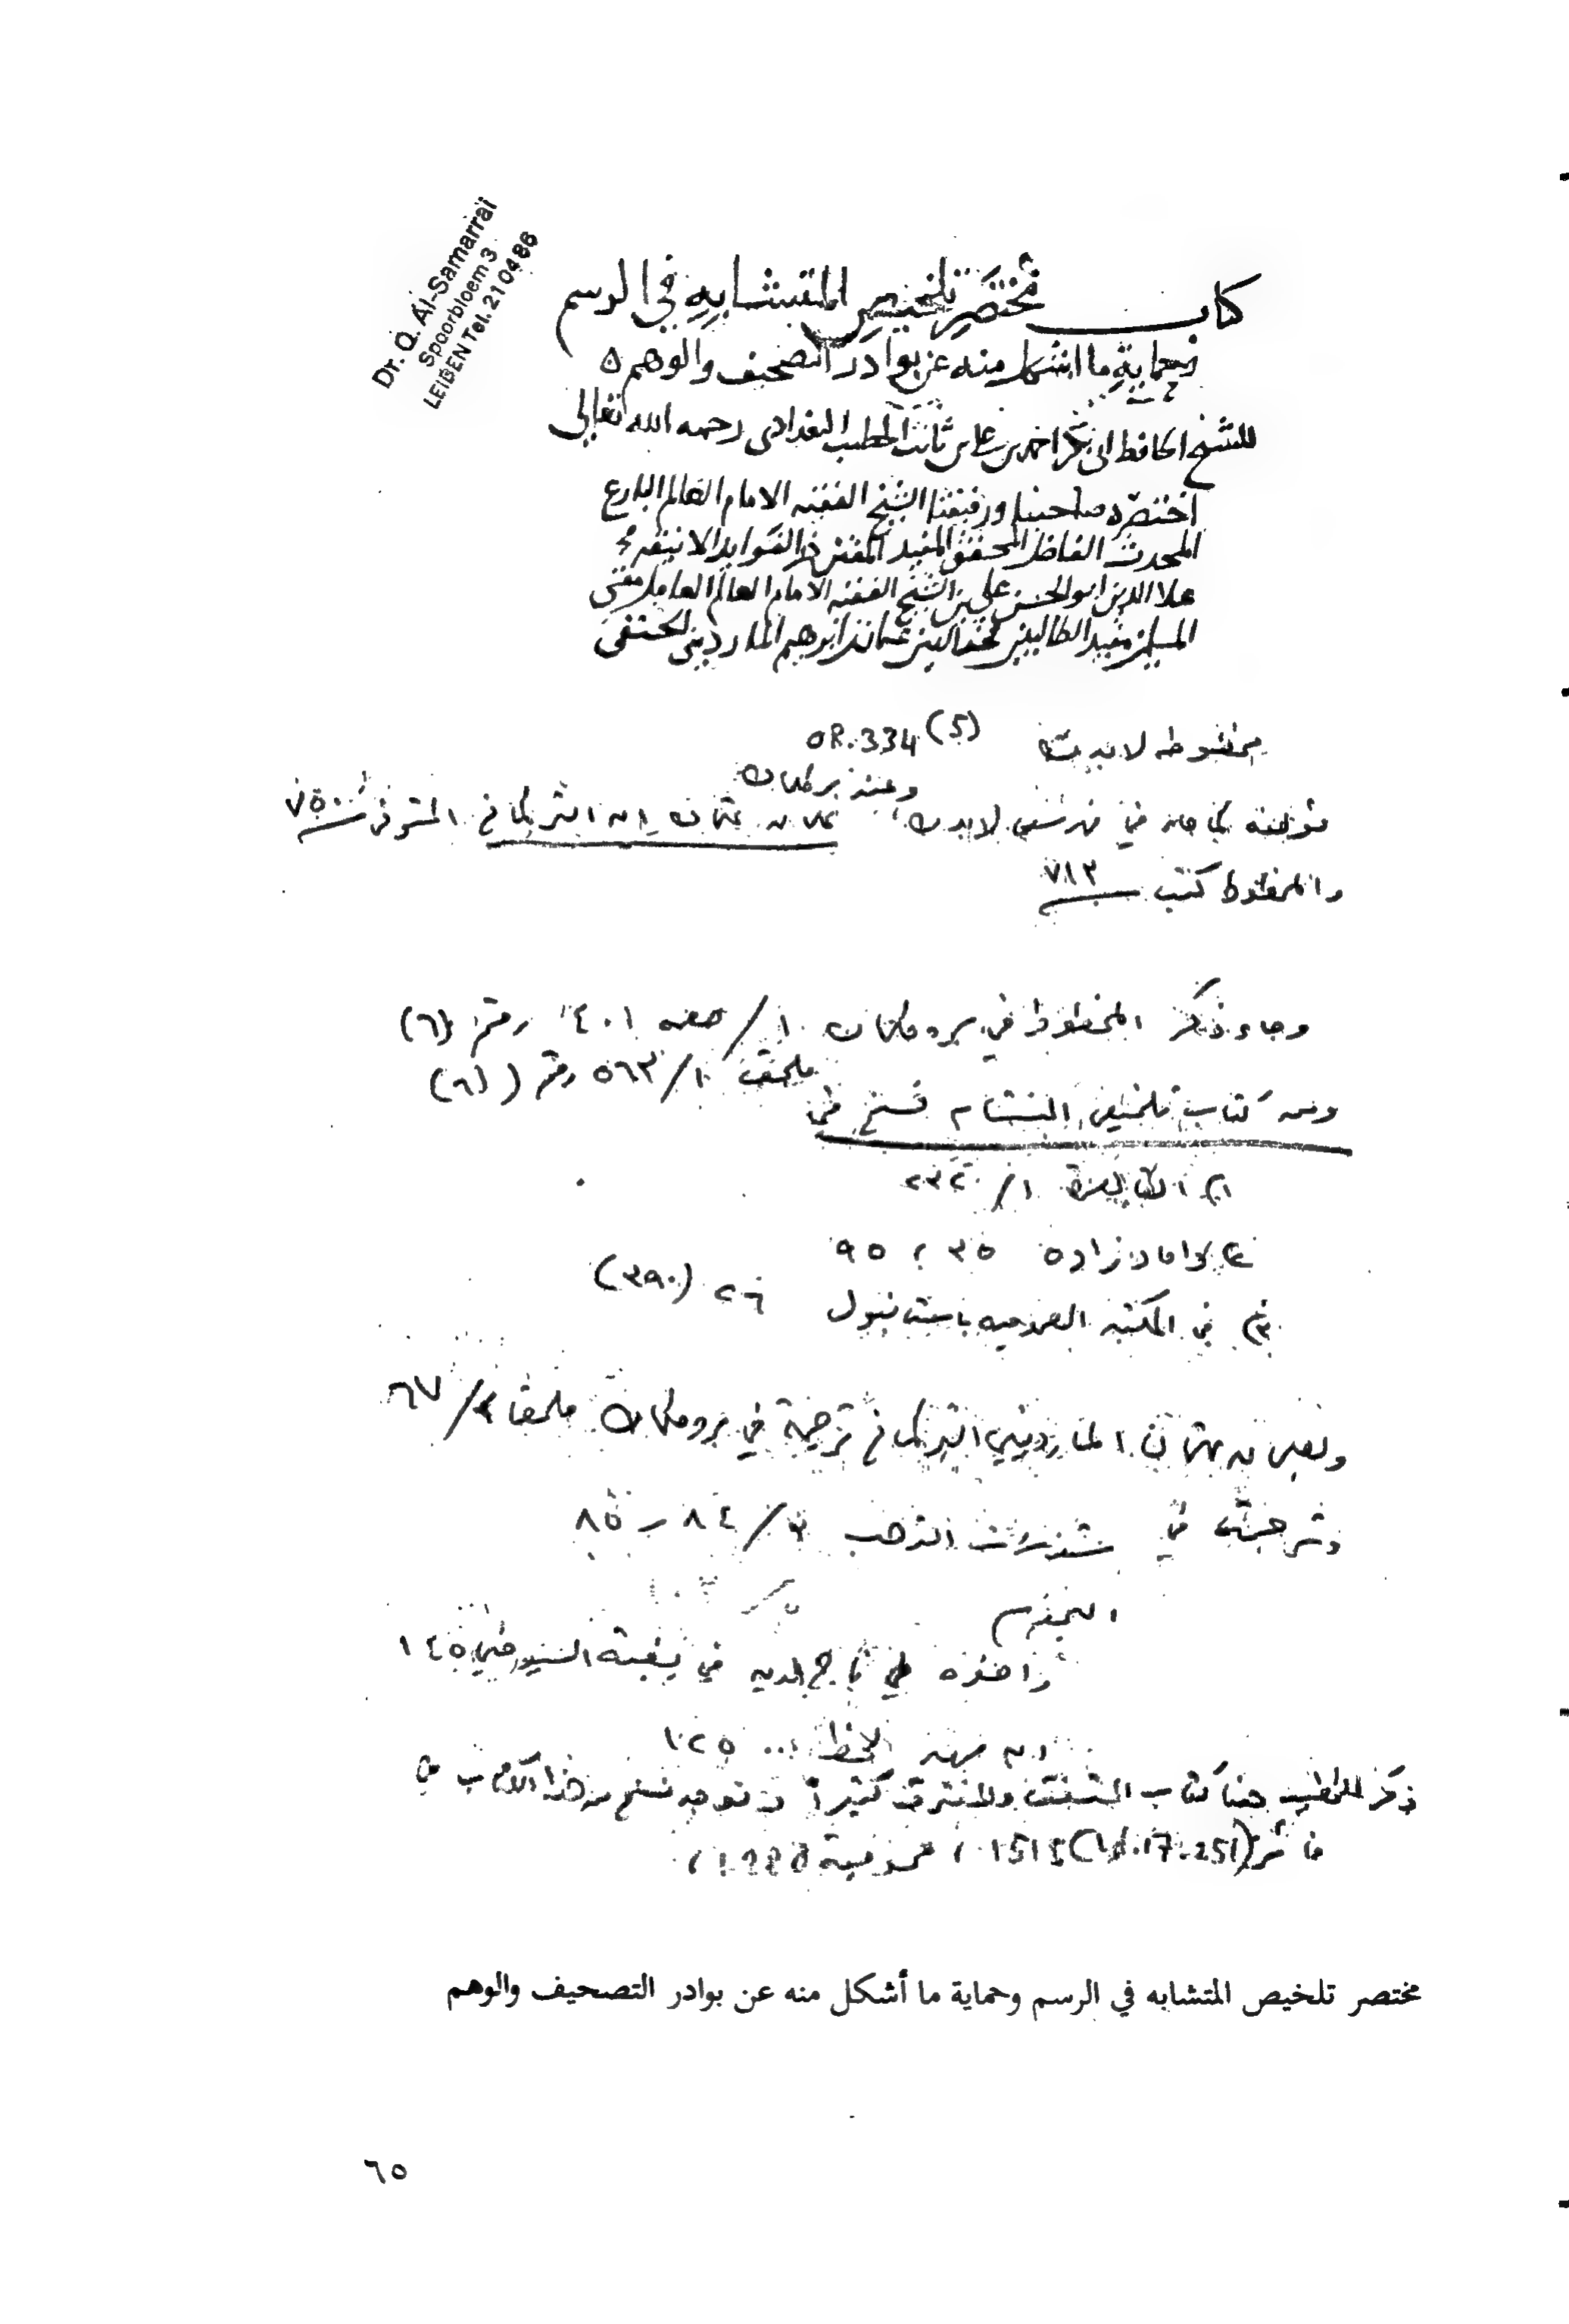 Dr. Q. Al-Samarrai
Spoorbloem 3
LEIDEN Tel. 210486
كتاب مختصر تلخيص المتشابه في الرسم
وحماية ما اشكل منه عن بوادر التصحيف والوهم
للشيخ الحافظ ابي بكر احمد بن علي بن ثابت الخطيب البغدادي رحمه الله تعالى
اختصره صاحبنا ورفيقنا الشيخ الفقيه الامام العالم البارع
المحدث الفاضل المحقق المفيد المفنن ذو الفوايد
علا الدين ابو الحسن علي بن الشيخ الفقيه الامام العالم العامل مفتي
المسلمين مفيد الطالبين فخر الدين عثمان بن ابرهيم المارديني الحنفي
مخطوطه لايدن OR. 334 (5)
مؤلفه كما جاء في فهرست لايدن، وعند بركلمان علي بن عثمان ابن التركماني المتوفى ٧٥٠
والمخطوط كتب ٧١٣
وجاء ذكر المخطوط في بروكلمان ١/ صفحه ٤٠١ رقم (٦)
ملحق ١/ ٥٦٣ رقم (٦)
ومن كتاب تلخيص المتشابه نسخ في
١) القاهرة ١/ ٢٣٢
٢) داماد زاده ٣٥، ٩٥
٣) في المكتبه العموميه باستانبول ٢٦ (٣٩٠)
ولعلي بن عثمان المارديني التركماني ترجمة في بروكلمان ملحق ٢/ ٦٧
وترجمته في شذرات الذهب ٣/ ٨٤ – ٨٥
النجوم
واخوه تاج الدين في بغية السيوطي ١٤٥
ابن فهد لحظ ... ١٢٥
ذكر للخطيب هنا كتاب المتفق والمفترق كثيراً توجد نسخ من هذا الكتاب في
فاتح (Vol. 17. 251) 1515،
مختصر تلخيص المتشابه في الرسم وحماية ما أشكل منه عن بوادر التصحيف والوهم
٦٥